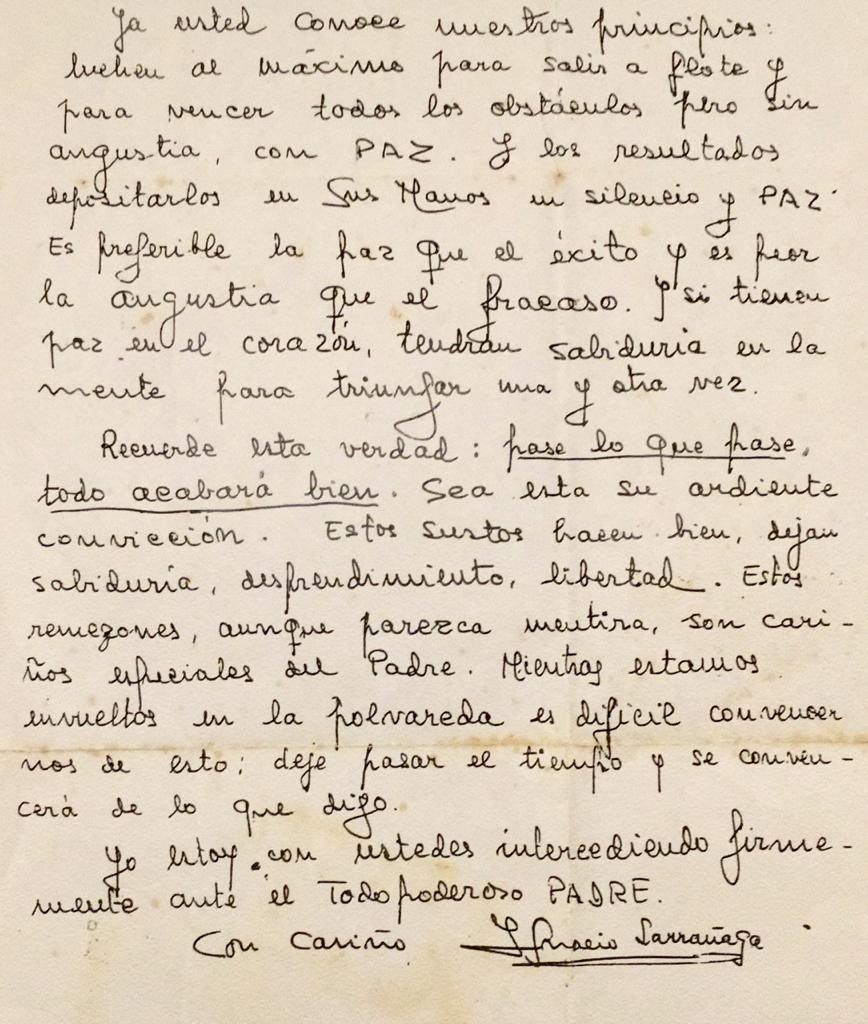 Ya usted conoce nuestros principios:
luchen al máximo para salir a flote y
para vencer todos los obstáculos pero sin
angustia, con PAZ. Y los resultados
depositarlos en Sus Manos en silencio y PAZ.
Es preferible la paz que el éxito y es peor
la angustia que el fracaso. Y si tienen
paz en el corazón, tendrán sabiduría en la
mente para triunfar una y otra vez.
Recuerde esta verdad: pase lo que pase,
todo acabará bien. Sea esta su ardiente
convicción. Estos sustos hacen bien, dejan
sabiduría, desprendimiento, libertad. Estos
remezones, aunque parezca mentira, son cari-
ños especiales del Padre. Mientras estamos
envueltos en la polvareda es difícil convencer
nos de esto; deje pasar el tiempo y se conven-
cerá de lo que digo.
Yo estoy con ustedes intercediendo firme-
mente ante el Todopoderoso PADRE.
Con cariño Ignacio Larrañaga